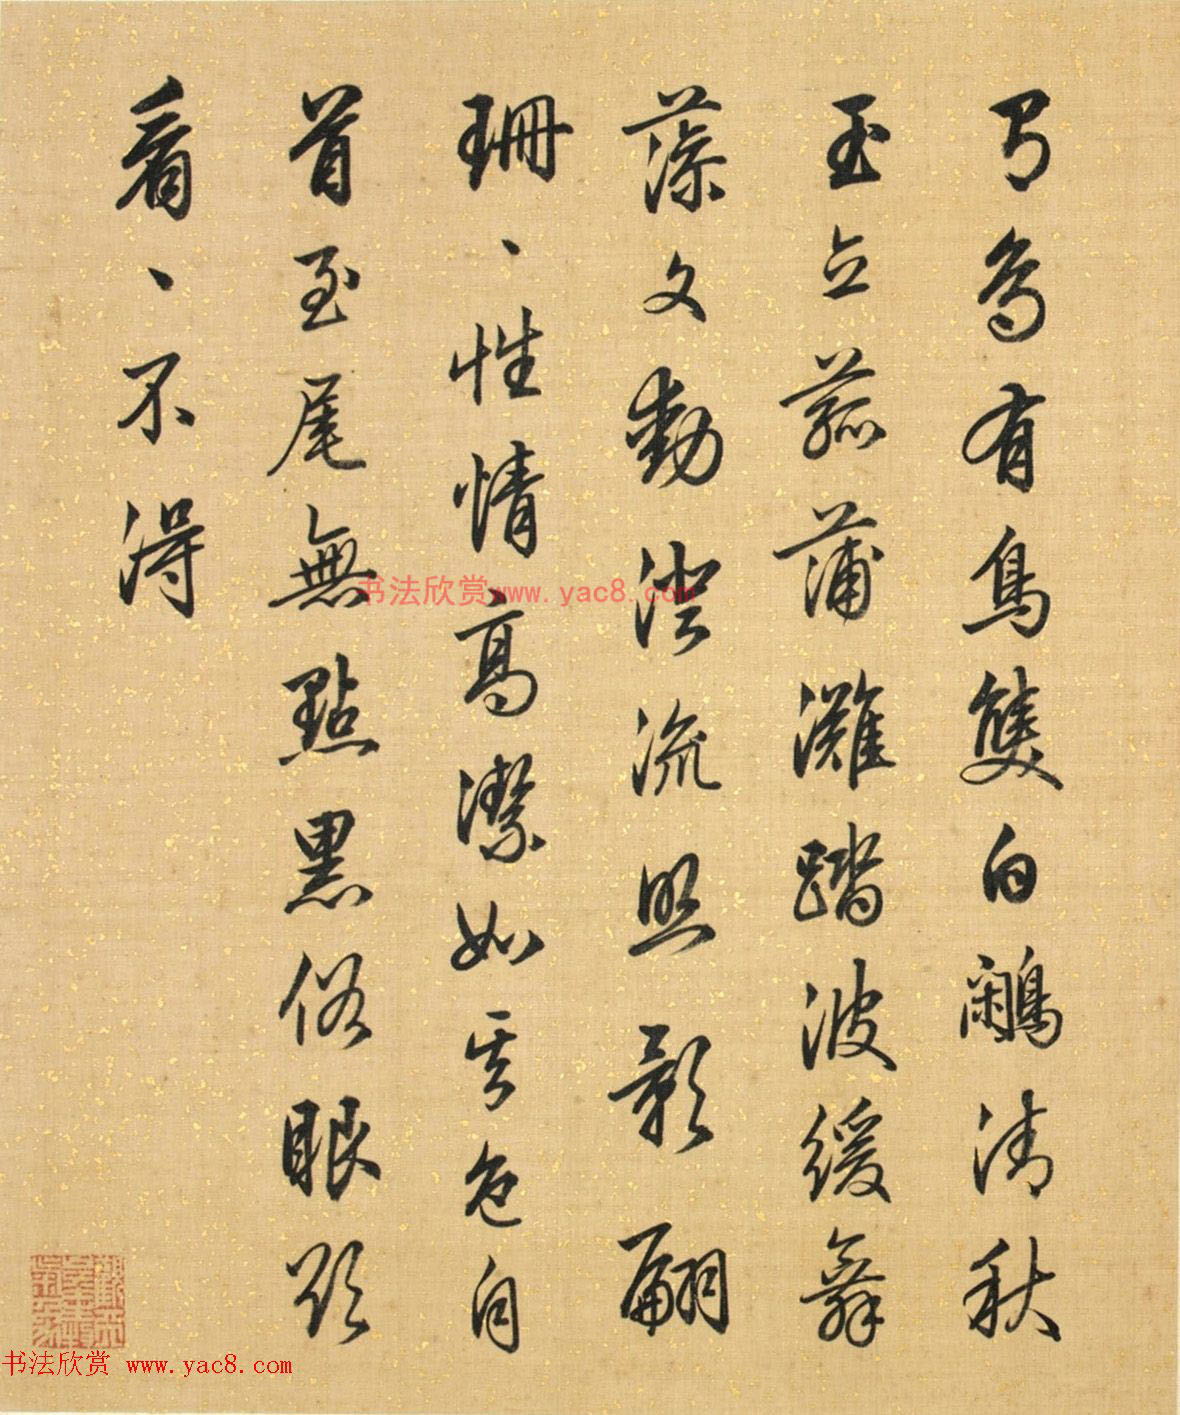 有鳥有鳥雙白鷳清秋
玉立菰蒲灘踏波緩舞
藻文動澄流照影翩
珊、性情高潔如其色自
首至尾無點黑俗眼欲
看、不得
书法欣赏www.yac8.com
书法欣赏 www.yac8.com